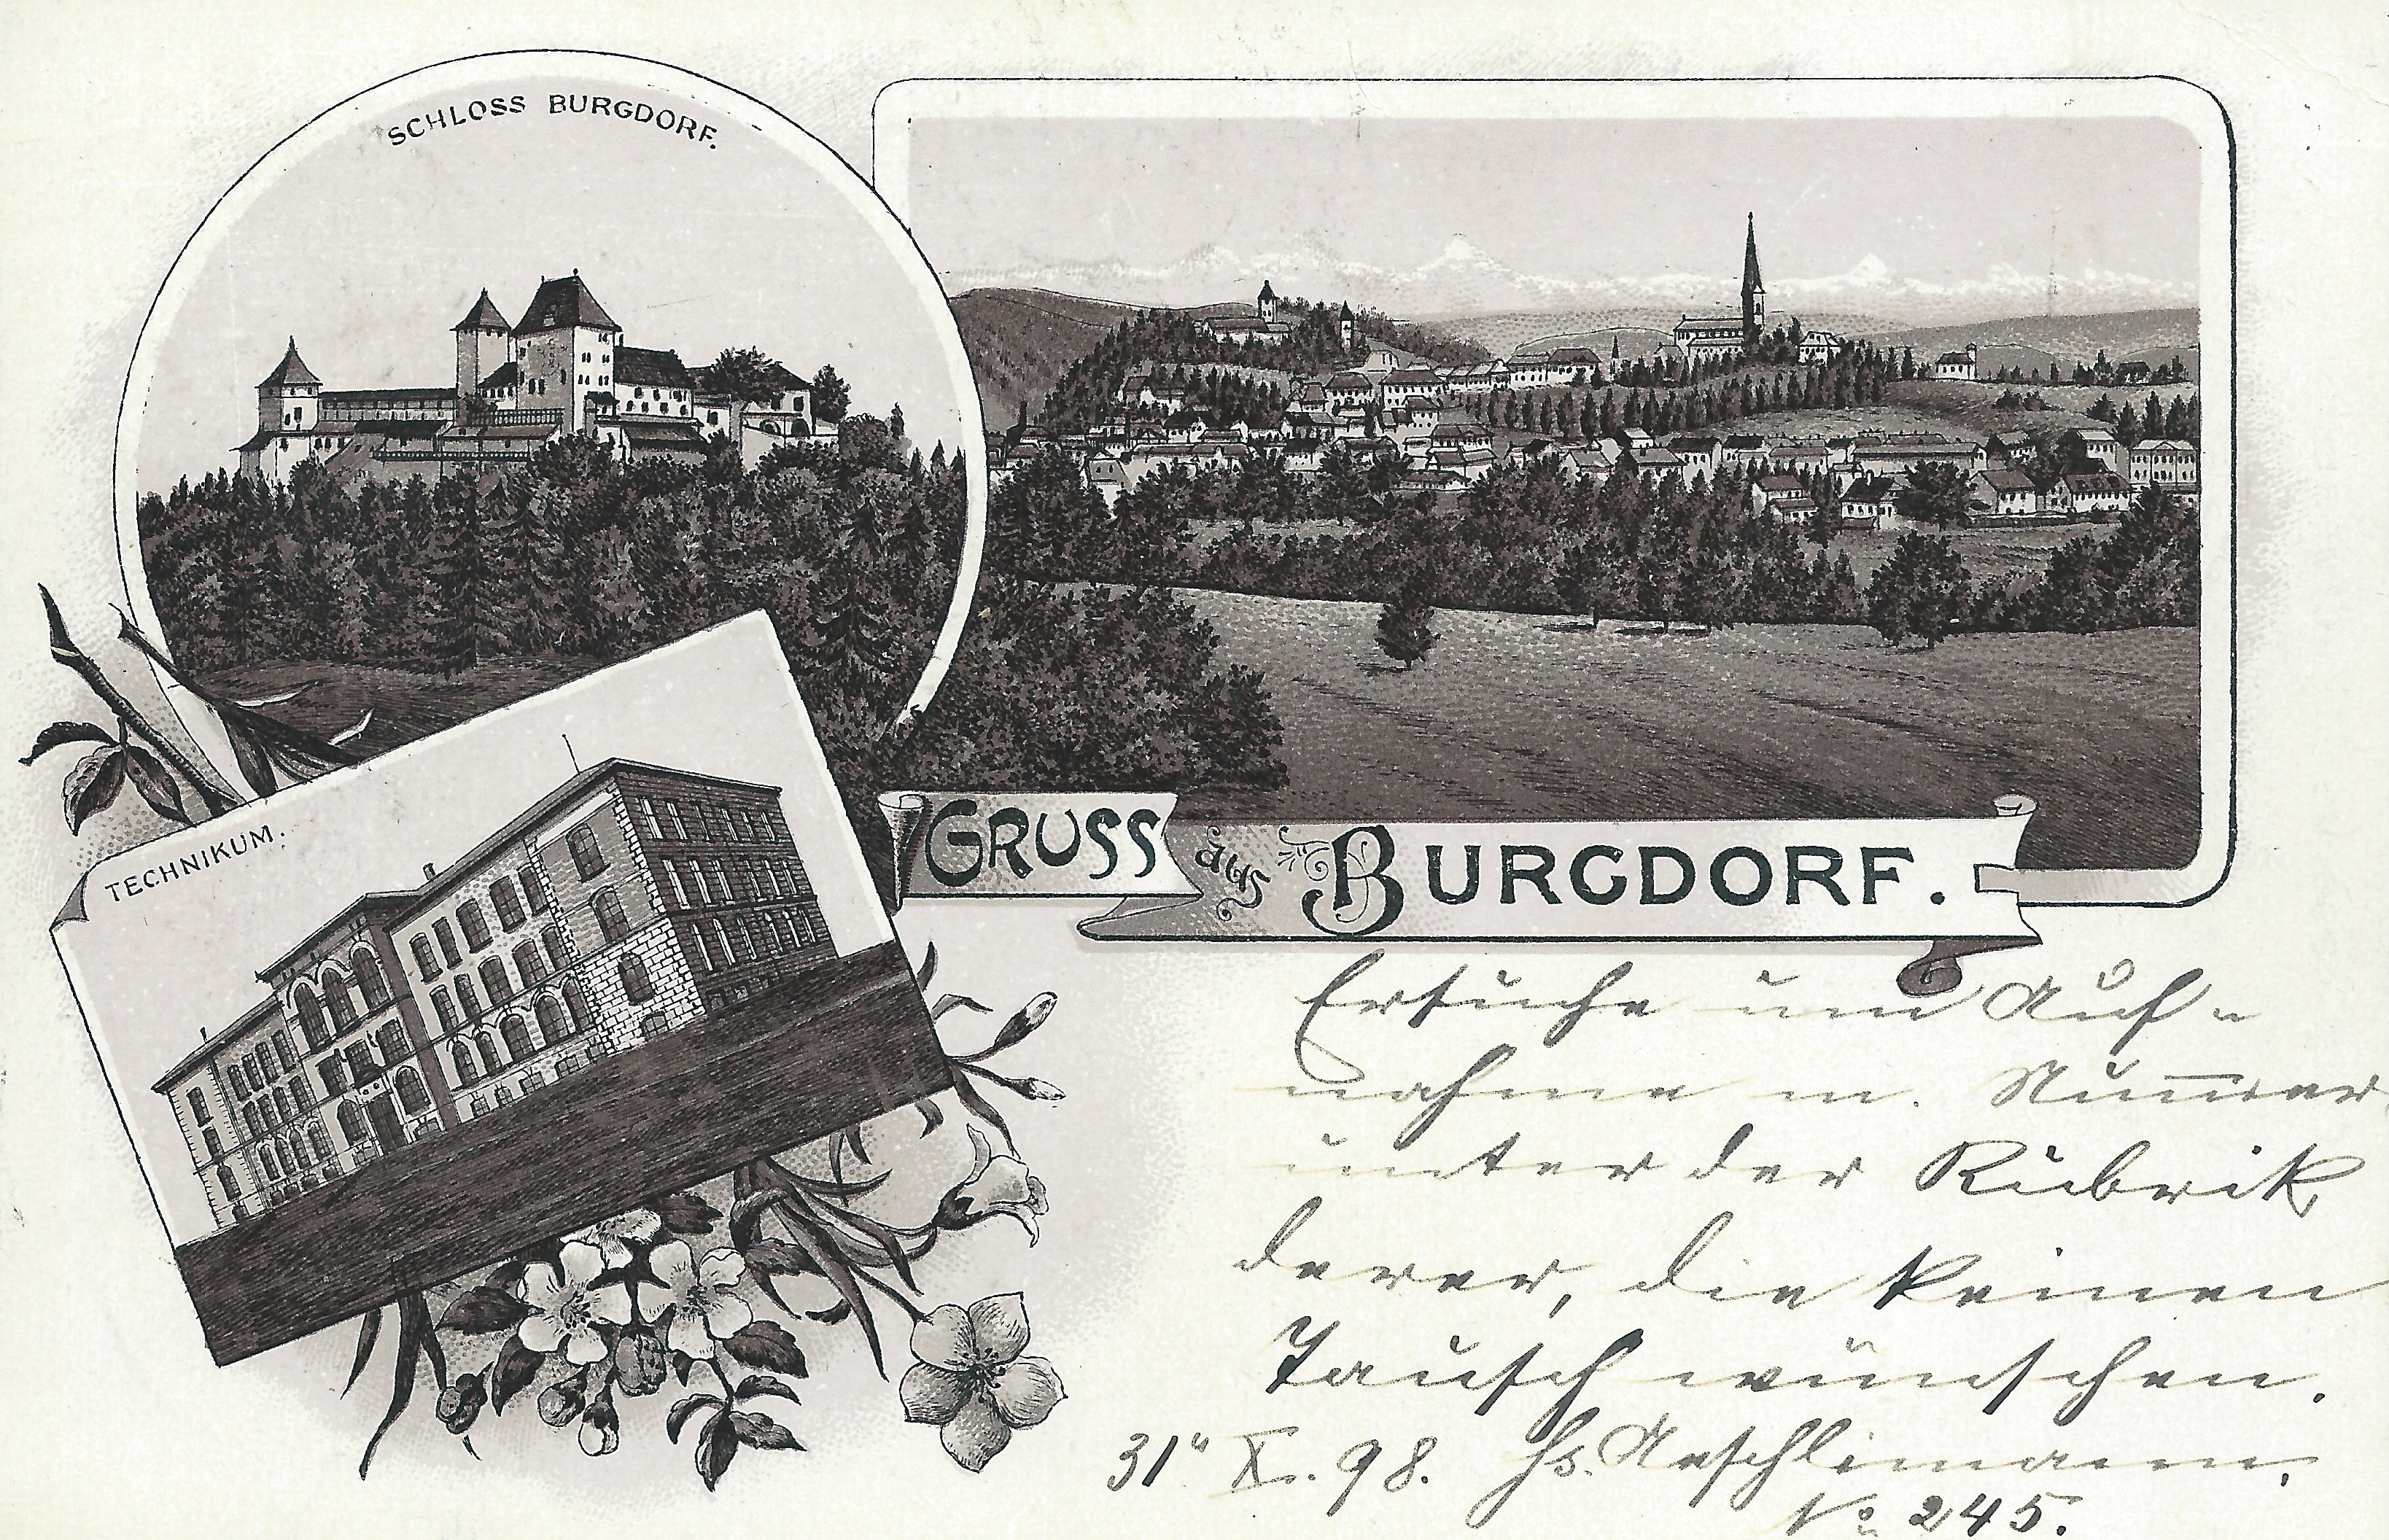 SCHLOSS BURGDORF.
TECHNIKUM.
GRUSS aus BURGDORF.
Ersuche um Auf-
nahme m. Num̅er
unter der Rubrik
derer, die keinen
Tausch wünschen.
31" X. 98. Hs. Aeschlimann.
No 245.